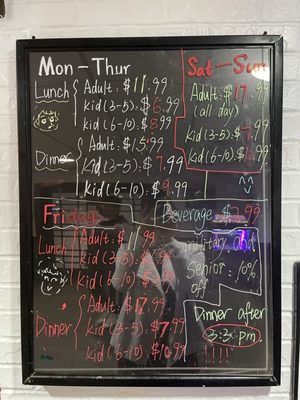 Mon - Thur
Lunch
Adult: $11.99
Kid (3-5): $6.99
Kid (6-10): $8.99
Dinner
Adult: $15.99
Kid (3-5): $7.99
Kid (6-10): $9.99
Sat - Sun
Adult: $17.99
(all day)
Kid (3-5): $7.99
Kid (6-10): .99
Friday
Lunch
Adult: $11.99
Kid (3-5): $6.99
Kid (6-10): .99
Dinner
Adult: $17.99
Kid (3-5): $7.99
Kid (6-10): $10.99
Beverage $ .99
military and
Senior: 10%
off
Dinner after
3:30 pm
!!!!